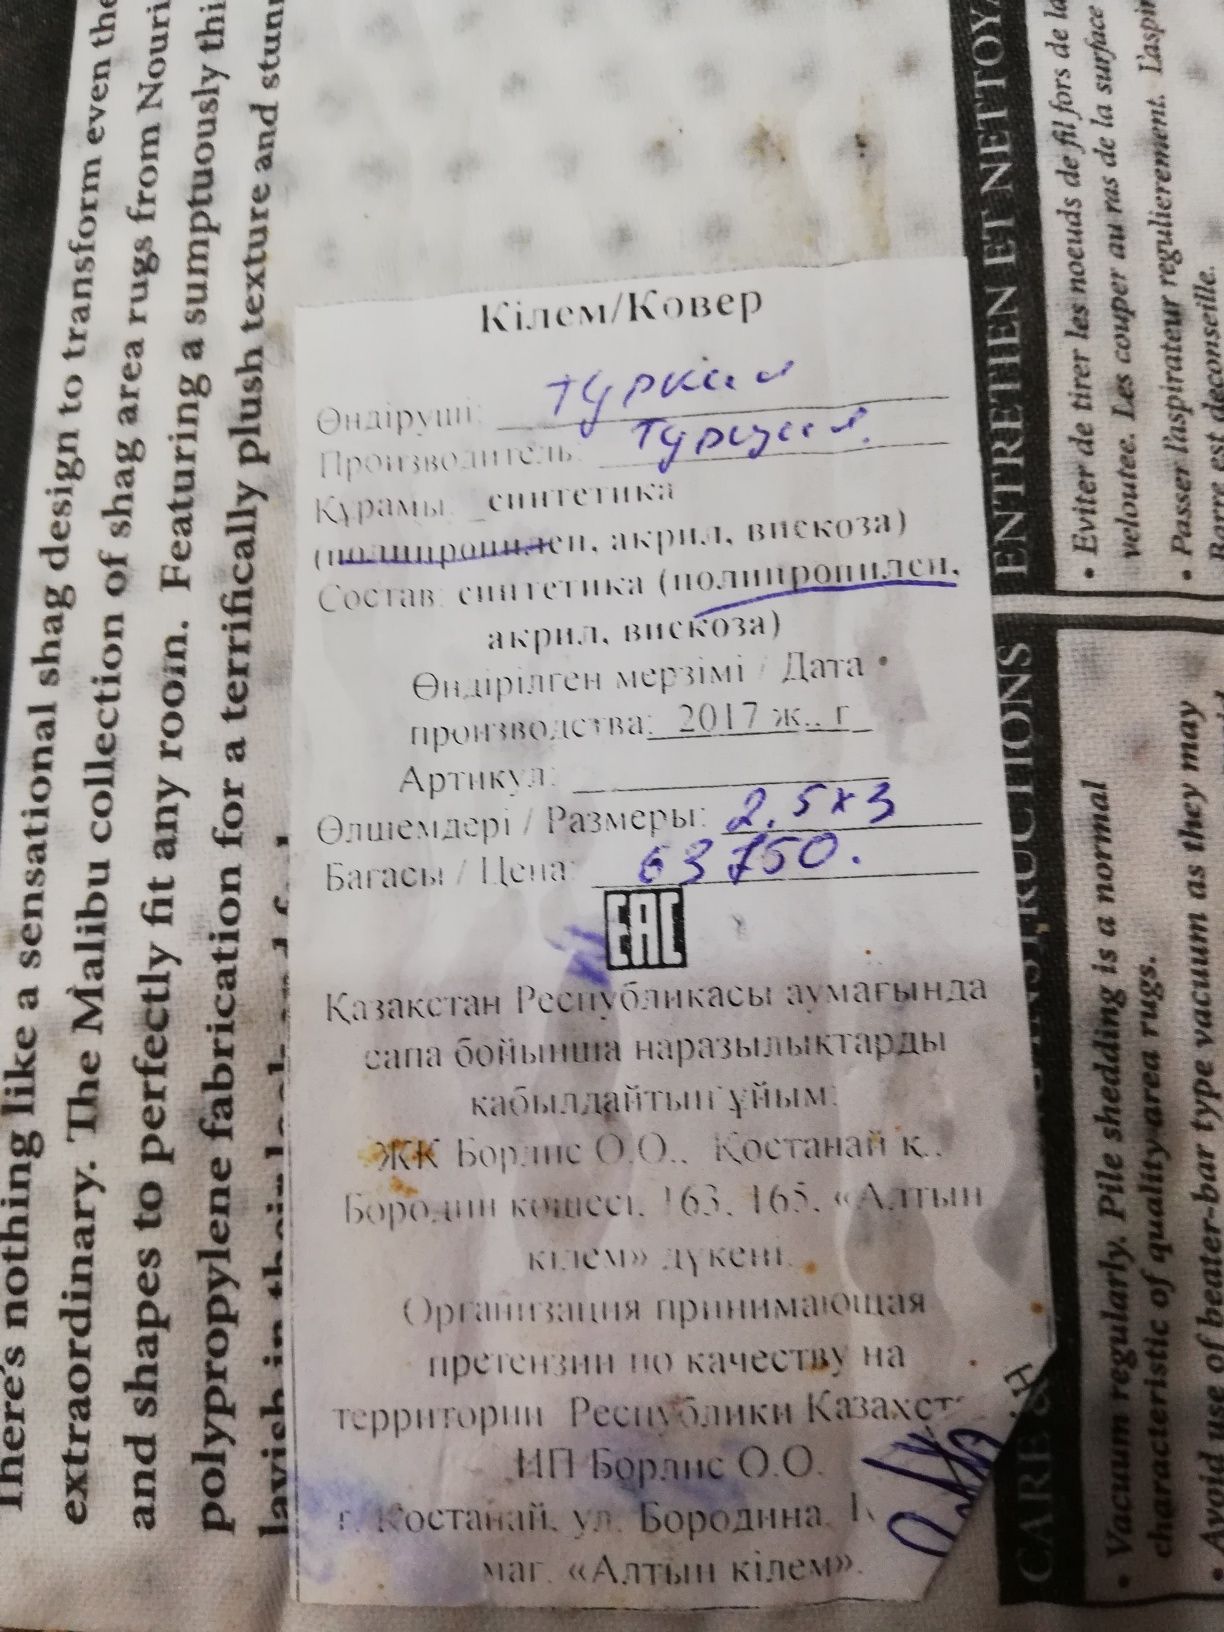 There's nothing like a sensational shag design to transform even the
extraordinary. The Malibu collection of shag area rugs from Nouri
and shapes to perfectly fit any room. Featuring a sumptuously thi
polypropylene fabrication for a terrifically plush texture and stunn
Кілем/Ковер
Өндіруші: Туркия
Производитель: Турция.
Құрамы: синтетика
(полипропилен, акрил, вискоза)
Состав: синтетика (полипропилен,
акрил, вискоза)
Өндірілген мерзімі / Дата
производства: 2017 ж., г
Артикул:
Өлшемдері / Размеры: 2,5х3
Бағасы / Цена: 63750.
EAC
Қазақстан Республикасы аумағында
сапа бойынша наразылықтарды
қабылдайтын ұйым:
ЖК Борлис О.О., Қостанай қ.,
Бородин көшесі, 163, 165, «Алтын
кілем» дүкені.
Организация принимающая
претензии по качеству на
территории Республики Казахст
ИП Борлис О.О.
г. Костанай, ул. Бородина, 1
маг. «Алтын кілем».
ENTRETIEN ET NETTOYA
• Eviter de tirer les noeuds de fil fors de la
veloutee. Les couper au ras de la surface
• Passer l'aspirateur regulierement. L'aspir
Barre est deconseille.
CARE & INSTRUCTIONS
• Vacuum regularly. Pile shedding is a normal
characteristic of quality area rugs.
• Avoid use of beater-bar type vacuum as they may